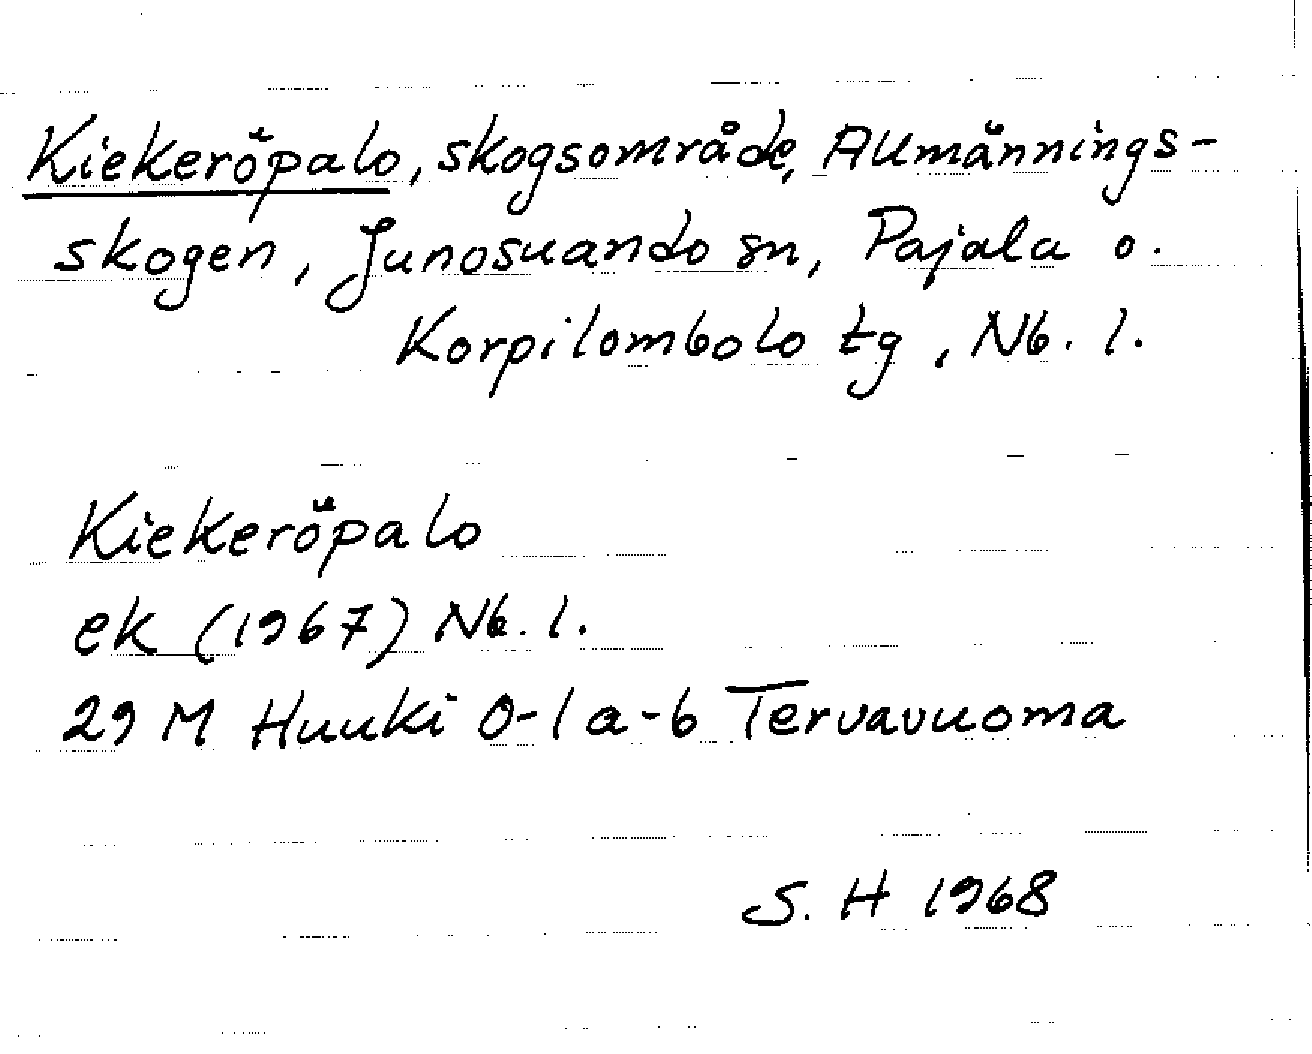 Kiekeröpalo, skogsområde, Allmännings-
skogen, Junosuando sn, Pajala o.
Korpilombolo tg, Nb. l.
Kiekeröpalo
ek (1967) Nb. l.
29 M Huuki 0-1 a-b Tervavuoma
S. H 1968